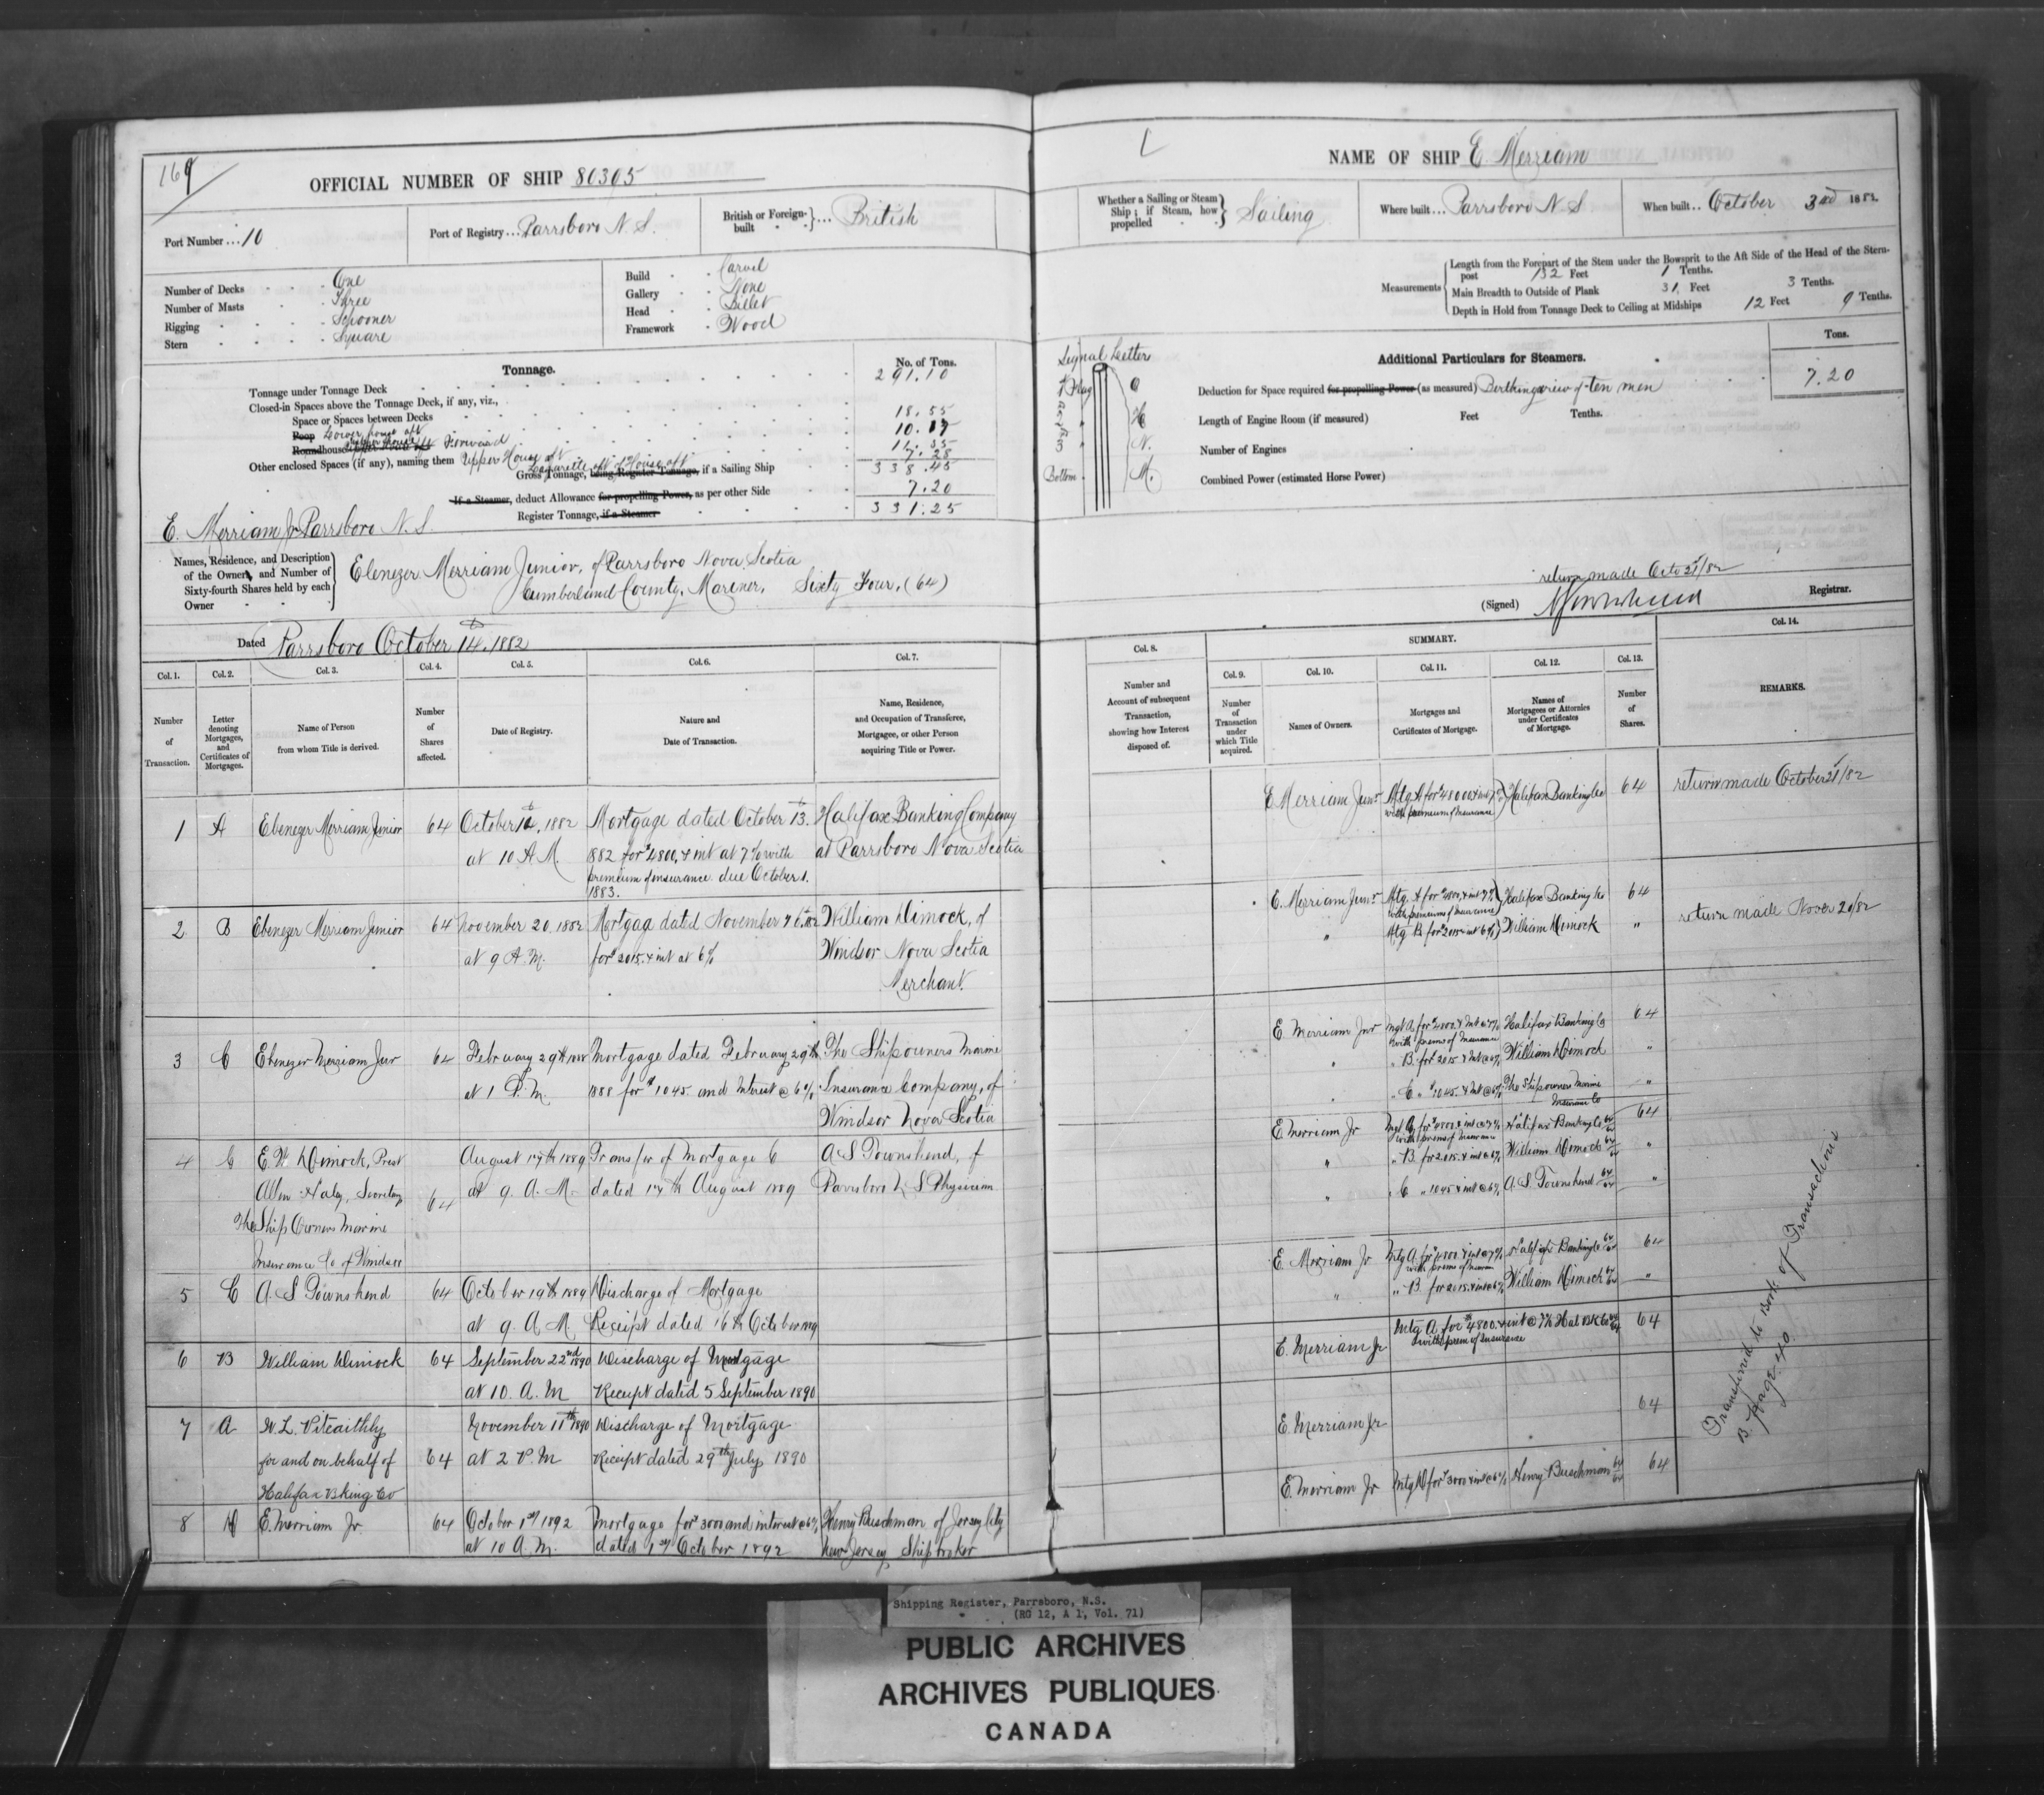 169
OFFICIAL NUMBER OF SHIP 80305
Port Number ... 10
Port of Registry ... Parrsboro N. S.
British or Foreign-built ... British
Number of Decks One
Number of Masts Three
Rigging Schooner
Stern Square
Build Carvel
Gallery None
Head Billet
Framework Wood
Tonnage.
No. of Tons.
Tonnage under Tonnage Deck 291.10
Closed-in Spaces above the Tonnage Deck, if any, viz.,
Space or Spaces between Decks
Poop Lower house aft 18.55
Roundhouse Forward 10.17
Other enclosed Spaces (if any), naming them Upper House aft
Lazarette aft
Gross Tonnage, being Register Tonnage, if a Sailing Ship 338.45
If a Steamer, deduct Allowance for propelling Power, as per other Side 7.20
Register Tonnage, if a Steamer 331.25
E. Merriam Jr Parrsboro N. S.
Names, Residence, and Description
of the Owners, and Number of
Sixty-fourth Shares held by each
Owner
Ebenezer Merriam Junior, of Parrsboro Nova Scotia
Cumberland County, Mariner, Sixty Four, (64)
Dated Parrsboro October 14th, 1882
Col. 1. Col. 2. Col. 3. Col. 4. Col. 5. Col. 6. Col. 7.
Number of Transaction.
Letter denoting Mortgages, and Certificates of Mortgages.
Name of Person from whom Title is derived.
Number of Shares affected.
Date of Registry.
Nature and Date of Transaction.
Name, Residence, and Occupation of Transferee, Mortgagee, or other Person acquiring Title or Power.
1 A Ebenezer Merriam Junior 64 October 14, 1882 Mortgage dated October 13th Halifax Banking Company
at 10 A M. 1882 for $4800, & int at 7% with at Parrsboro Nova Scotia
premium of insurance due October 1.
1883.
2 B Ebenezer Merriam Junior 64 November 20, 1882 Mortgag dated November William Dimock, of
at 9 A. M. for $2015. & int at 6% Windsor Nova Scotia
Merchant.
3 C Ebenezer Merriam Jur 64 February 29th 1888 Mortgage dated February 29th The Shipowners Marine
at 1 P. M. 1888 for $1045. and Interest @ 6% Insurance Company, of
Windsor Nova Scotia
4 C E. W Dimock, Prest August 17th 1889 Transfer of Mortgage C A S Townshend, of
Allen Haley, Secretary 64 at 9. A. M. dated 17th August 1889 Parrsboro N S Physician
The Ship Owners Marine
Insurance Co of Windsor
5 C A. S Townshend 64 October 19th 1889 Discharge of Mortgage
at 9. A M. Receipt dated 16th October 1889
6 B William Dimock 64 September 22nd 1890 Discharge of Mortgage
at 10. A. M Receipt dated 5 September 1890
7 A W. L. Pitcaithly November 11th 1890 Discharge of Mortgage
for and on behalf of 64 at 2 P. M Receipt dated 29th July 1890
Halifax Bking Co
8 D E. Merriam Jr. 64 October 1st 1892 Mortgage for $3000 and interest @ 6% Henry Buschman of Jersey City
at 10 A. M. dated 1st October 1892 New Jersey Shipbroker
NAME OF SHIP E. Merriam
Whether a Sailing or Steam Ship; if Steam, how propelled Sailing
Where built ... Parrsboro N S
When built .. October 3rd 1882.
Measurements
Length from the Forepart of the Stem under the Bowsprit to the Aft Side of the Head of the Stern-
post 132 Feet 1 Tenths.
Main Breadth to Outside of Plank 31 Feet 3 Tenths.
Depth in Hold from Tonnage Deck to Ceiling at Midships 12 Feet 9 Tenths.
Tons.
Signal Letter
Additional Particulars for Steamers.
Deduction for Space required for propelling Power (as measured) Berthing of ten men 7.20
Length of Engine Room (if measured) Feet Tenths.
Number of Engines
N.
Bottom M.
Combined Power (estimated Horse Power)
return made Octo 21/82
(Signed) Registrar.
SUMMARY.
Col. 8. Col. 9. Col. 10. Col. 11. Col. 12. Col. 13. Col. 14.
Number and Account of subsequent Transaction, showing how Interest disposed of.
Number of Transaction under which Title acquired.
Names of Owners.
Mortgages and Certificates of Mortgage.
Names of Mortgagees or Attornies under Certificates of Mortgage.
Number of Shares.
REMARKS.
E Merriam Junr Mtg A for $4800 & int 7% Halifax Banking Co 64 return made October 21/82
with premium of Insurance
E. Merriam Junr Mtg. A for $4800. & int 7% Halifax Banking Co 64
with premium of Insurance
" Mtg B for $2015 & int 6% William Dimock " return made Nover 20/82
E Merriam Jnr Mgt A. for $4800. & Int @ 7% Halifax Banking Co 64
with prems of Insurance
" B. for $2015. & Int @ 6% William Dimock "
" C " $1045. & Int @ 6% The Shipowners Marine "
Insurance Co
E Merriam Jr Mgt A for $4800 & int @ 7% Halifax Banking Co 64/64 64
with prems of Insurance
" " B. for 2015. & int @ 6% William Dimock 64/64 "
" " C " 1045 & int @ 6% A. S. Townshend 64/64 "
E. Merriam Jr Mtg A. for $4800. & int @ 7% Halifax Banking Co 64/64 64
" " B for 2015. & int @ 6% William Dimock 64/64 "
E. Merriam Jr Mtg A. for $4800. & int @ 7% Hal BK Co 64/64 64
with prem of Insurance
E. Merriam Jr 64
E. Merriam Jr Mtg D for $3000 & int @ 6% Henry Buschman 64/64 64
Transferred to Book of Transactions
B. Page 40.
Shipping Register, Parrsboro, N.S.
(RG 12, A 1, Vol. 71)
PUBLIC ARCHIVES
ARCHIVES PUBLIQUES
CANADA